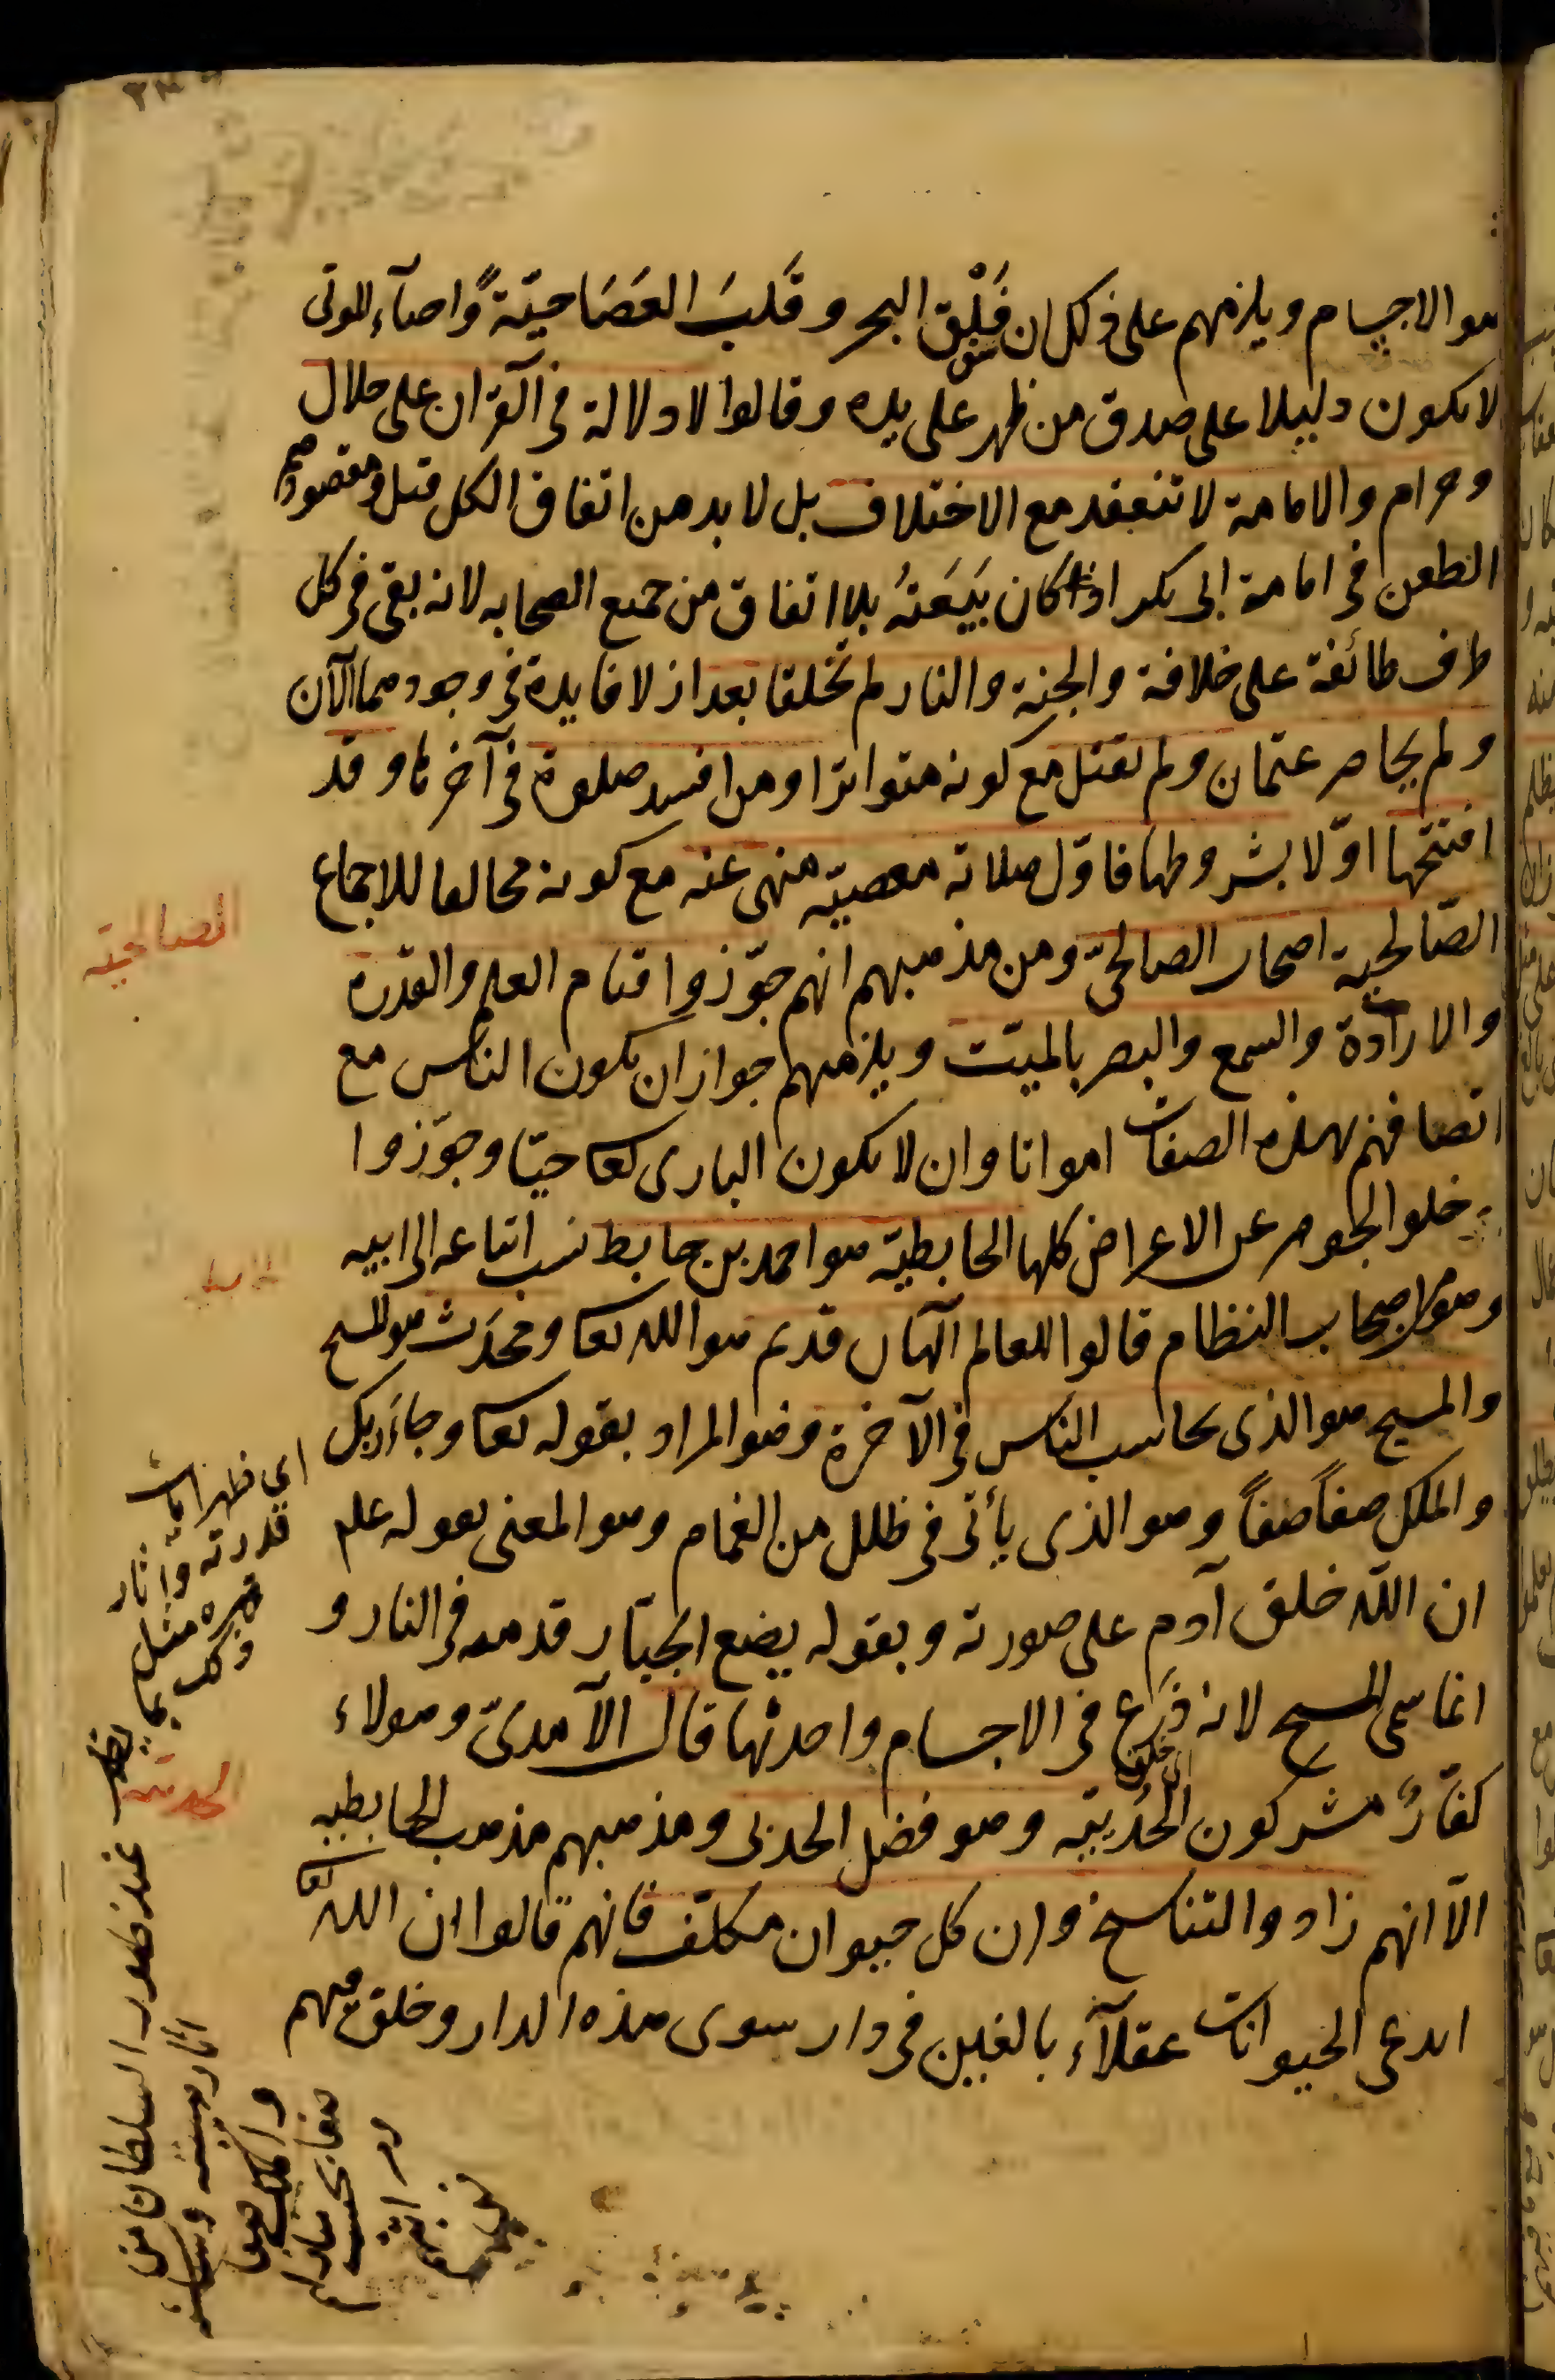 هو الاجسام ويلزمهم على ذلك ان فَلْق البحر وقَلبَ العَصَا حيّةً واحياء الموتى
لا يكون دليلا على صدق من ظهر على يده وقالوا لا دلالة فى القران على حلال
وحرام والامامة لا تنعقد مع الاختلاف بل لا بد من اتفاق الكل قيل ومقصودهم
الطعن فى امامة ابى بكر اذ كان بَيعَتهُ بلا اتفاق من جميع الصحابه لانه بقى فى كل
طرف طائفة على خلافه والجنة والنار لم تخلقا بعد اذ لا فايدة فى وجودهما الآن
ولم يحاصر عثمان ولم يقتل مع كونه متواترا ومن افسد صلوة فى آخرها وقد
افتتحها اوّلا بشروطها فاوّل صلاته معصيّة منهى عنه مع كونه مخالفا للاجماع
الصّالحية اصحاب الصالحىّ ومن مذهبهم انهم جوّزوا قيام العلم والقدرة
والارادة والسمع والبصر بالميّت ويلزمهم جواز ان يكون الناس مع
اتصافهم بهذه الصفات امواتا وان لا يكون البارى تعا حيّا وجوّزوا
خلو الجوهر عن الاعراض كلها الحابطية هو احمد بن حابط نسب اتباعه الى ابيه
وهو من اصحاب النظام قالوا للعالم الهان قديم هو الله تعا ومحدَث هو المسيح
والمسيح هو الذى يحاسب الناس فى الآخرة وهو المراد بقوله تعا وجاء ربك
والملك صفاً صفاً وهو الذى يأتى فى ظلل من الغمام وهو المعنى بقوله علم
ان الله خلق آدم على صورته وبقوله يضع الجبّار قدمه فى النار و
انما سمى المسيح لانه ذرع فى الاجسام واحدثها قال الآمدىّ وهولاء
كفّارٌ مشركون الحُدَيبيّة وهو فضل الحدبى ومذهبهم مذهب الحابطيه
الّا انهم زادوا التناسخ وان كل حيوان مكلّف فانهم قالوا ان الله تعا
ابدع الحيوانات عقلآء بالغين فى دار سوى هذه الدار وخلق فيهم
الصالحيّة
اى ظهر آيات
قدرته وآثار
قهره مثل
ذلك بما يظهر
عند ظهور السلطان من
آثار هيبته وسياسته
والملك صفا
صفا بحسب منازلهم